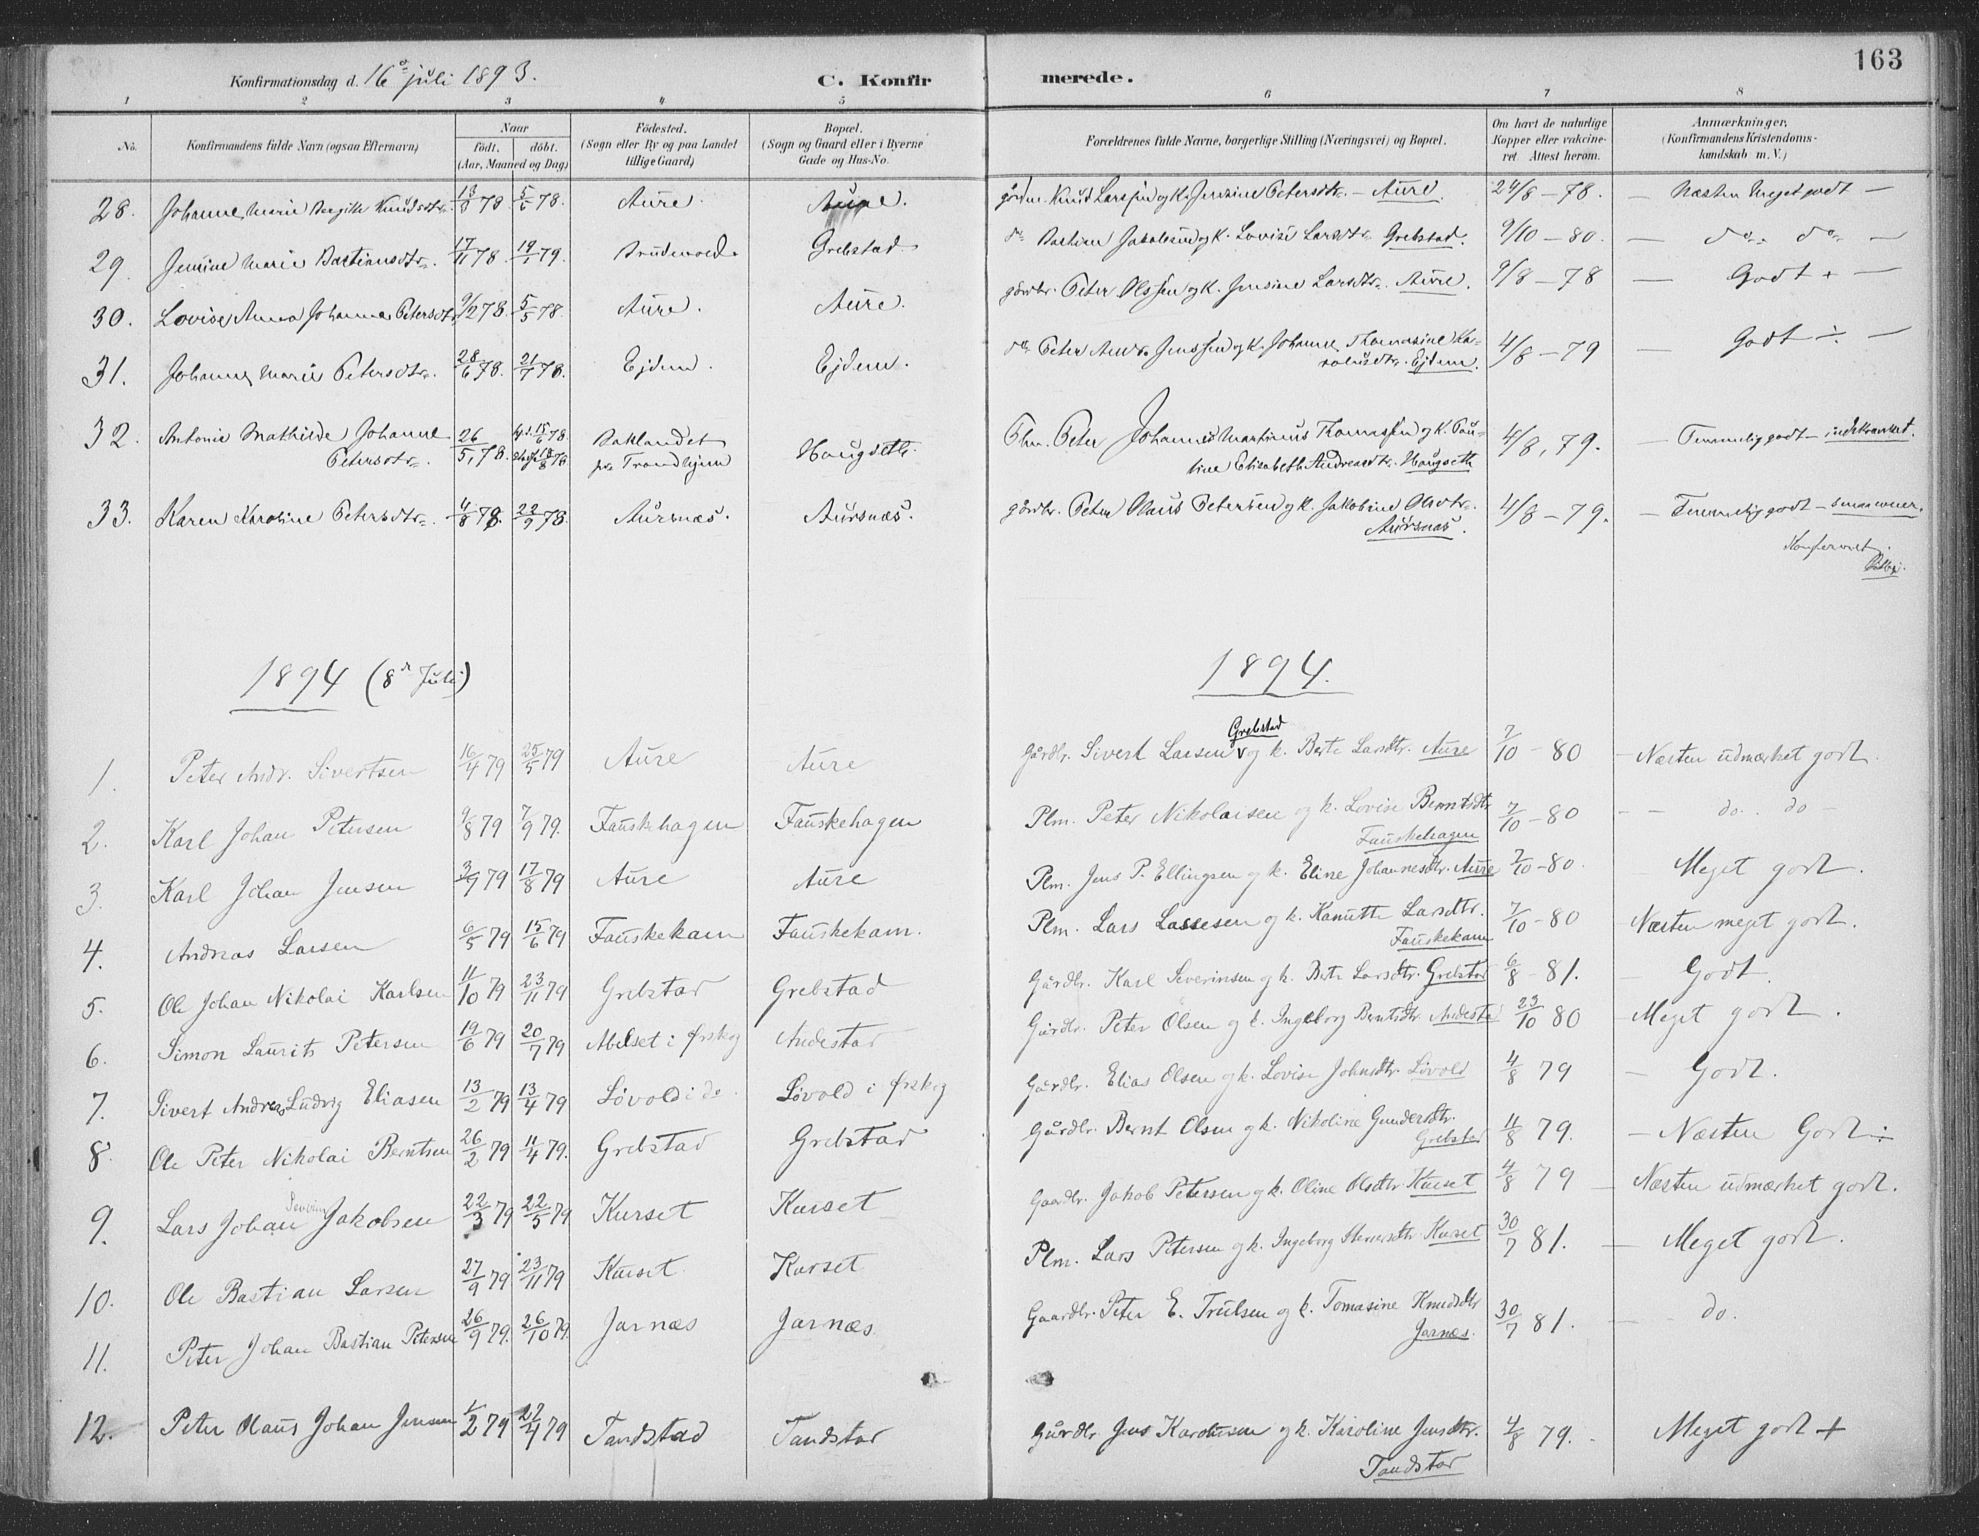 163
Konfirmationsdag d. 16de juli 1893.
C. Konfirmerede.
1 2 3 4 5 6 7 8
No.
Konfirmandens fulde Navn (ogsaa Efternavn)
Naar
födt. döbt.
(Aar, Maaned og Dag)
Födested.
(Sogn eller By og paa Landet
tillige Gaard)
Bopæl.
(Sogn og Gaard eller i Byerne
Gade og Hus-No.
Forældrenes fulde Navne, borgerlige Stilling (Næringsvei) og Bopæl.
Om havt de naturlige
Kopper eller vakcine-
ret Attest herom.
Anmærkninger,
(Konfirmandens Kristendoms-
kundskab m. V.)
28. Johanne Marie Bergithe Knudsdtr. 13/3 78 5/5 78. Aure. Aure. Knud Larssen og k. Jensine Petersdtr. – Aure. 24/8 – 78. – Næsten Meget godt –
29. Jensine Marie Bastiansdtr. 17/11 78. 19/1 79. Brudevold. Grebstad. do Bastian Jakobsen og k. Lovise Larsdtr. Grebstad. 9/10 – 80. – do do –
30. Lovise Anna Johanne Petersdtr. 9/2 78. 5/5 78. Aure. Aure. gårdbr. Peter Olssen og k. Jensine Larsdtr. Aure. 9/8 – 78 – Godt + –
31. Johanne Marie Petersdtr. 28/6 78. 21/7 78. Ejdem. Ejdem. do Peter Andr. Jenssen og k. Johanne Thomasine Ka-
rolusdtr. Ejdem. 4/8 – 79 – Godt ÷ –
32. Antonie Mathilde Johanne
Petersdtr. 26/5, 78. 15/6 78. 78 Baklandet
Trondhjem Haugseth. Peter Johannes Martinus Thomassen og k. Pau-
line Elisabeth Andreasdtr. Haugseth 4/8, 79. – Temmelig godt –
33. Karen Karoline Petersdtr. 4/8 78. 22/9 78. Aursnæs. Aursnæs. gårdbr. Peter Olaus Petersen og k. Jakobine Olsdtr.
Aursnæs. 4/8 – 79. – Temmelig godt – smaa evner.
1894 (8de Juli) 1894.
1. Peter Andr. Sivertsen 16/4 79 25/5 79 Aure Aure Gårdbr. Sivert Larsen Grebstad og k. Berte Larsdtr. Aure 7/10 – 80 – Næsten udmærket godt.
2. Karl Johan Petersen 9/8 79 7/9 79. Fauskehagen Fauskehagen Plm. Peter Nikolaisen og k. Lovise Berntsdtr
Fauskehagen 7/10 – 80 – – do. do –
3. Karl Johan Jensen 3/7 79 17/8 79 Aure Aure Plm. Jens P. Ellingsen og k. Eline Johannesdtr. Aure 7/10 – 80. Meget godt.
4. Andreas Larsen 6/5 79 15/6 79 Fauskekam Fauskekam. Plm. Lars Lassesen og k. Kanutte Larsdtr.
Fauskekam 7/10 – 80 Næsten meget godt.
5. Ole Johan Nikolai Karlsen 11/10 79 23/11 79 Grebstad Grebstad Gårdbr. Karl Severinsen og k. Berte Larsdtr. Grebstad 6/8 – 81. – Godt.
6. Simon Laurits Petersen 19/6 79 20/7 79 Abelset i Ørskog Andestad Gårdbr. Peter Olsen og k. Ingeborg Berntsdtr. Andestad 23/10 80 – Meget godt.
7. Sivert Andreas Ludvig Eliasen 13/2 79 13/4 79 Lövold i do. Lövold i Ørskog Gårdbr. Elias Olsen og k. Lovise Johnsdtr. Lövold 4/8 79 – Godt.
8. Ole Peter Nikolai Berntsen 26/2 79 11/4 79. Grebstad Grebstad Gårdbr. Bernt Olsen og k. Nikoline Gundersdtr.
Grebstad 4/8 79. – Næsten Godt ÷
9. Lars Johan Severin Jakobsen 22/3 79 22/5 79 Kurset Kurset Gaardbr. Jakob Petersen og k. Oline Olsdtr. Kurset 4/8 79 – Næsten udmærket godt.
10. Ole Bastian Larsen 27/9 79 23/11 79 Kurset Kurset Plm. Lars Petersen og k. Ingeborg Kurset 30/7 81. – Meget godt.
11. Peter Johan Bastian Petersen 26/9 79. 26/10 79. Jarnæs Jarnæs Gaardbr. Peter E. Trulsen og k. Tomasine Knudsdtr
Jarnæs. 30/7 81. – do.
12. Peter Olaus Johan Jensen 1/2 79 27/4 79 Tandstad Tandstad Gårdbr Jens Karolusen og k. Karoline Jensdtr.
Tandstad 4/8 79. Meget godt +